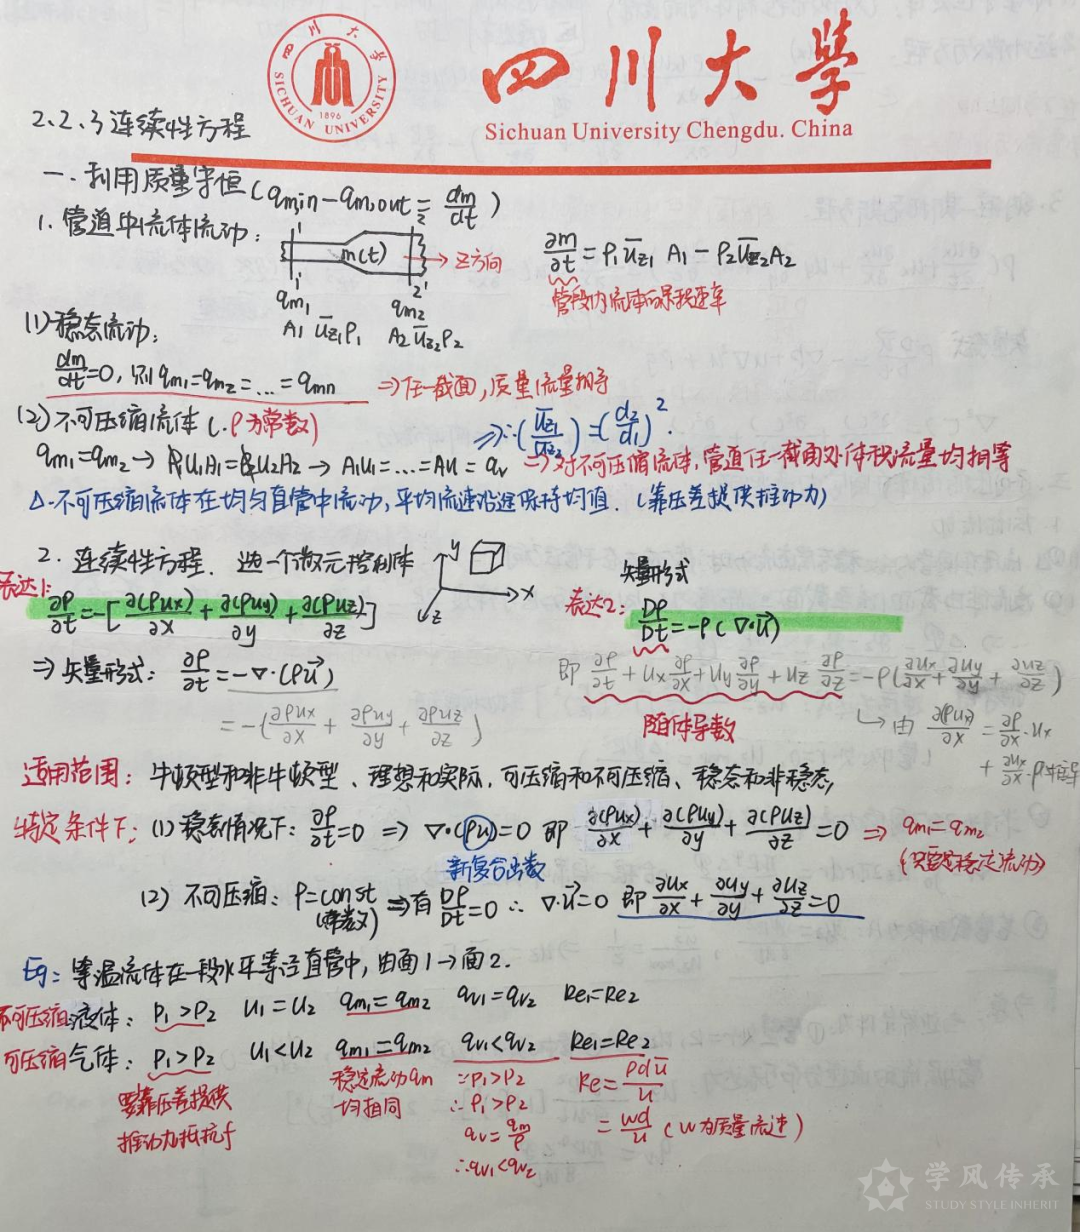 四川大学
SICHUAN UNIVERSITY
1896
四川大学
Sichuan University Chengdu. China
2.2.3 连续性方程
一. 利用质量守恒 (qm,in - qm,out = dm/dt)
1. 管道中流体流动:
1 2 m(t) → z方向
1' 2'
qm₁ qm₂
A₁ ūz₁ρ₁ A₂ ūz₂ρ₂
∂m/∂t = ρ₁ūz₁A₁ = ρ₂ūz₂A₂
管段内流体的累积速率
(1) 稳态流动:
dm/dt = 0, 则 qm₁ = qm₂ = … = qmn ⇒ 任一截面, 质量流量相等
(2) 不可压缩流体 (∴ρ为常数) ⇒ ∴(ūz₁/ūz₂) = (d₂/d₁)².
qm₁ = qm₂ → ρ₁u₁A₁ = ρ₂u₂A₂ → A₁u₁ = … = Au = qv ⇒ 对不可压缩流体, 管道任一截面处体积流量均相等
△. 不可压缩流体在均匀直管中流动, 平均流速沿途保持均值. (靠压差提供推动力)
2. 连续性方程. 选一个微元控制体
y x z
表达1: ∂ρ/∂t = -[∂(ρux)/∂x + ∂(ρuy)/∂y + ∂(ρuz)/∂z]
矢量形式
表达2: Dρ/Dt = -ρ(∇·u⃗)
⇒ 矢量形式: ∂ρ/∂t = -∇·(ρu⃗)
= -(∂ρux/∂x + ∂ρuy/∂y + ∂ρuz/∂z)
即 ∂ρ/∂t + ux ∂ρ/∂x + uy ∂ρ/∂y + uz ∂ρ/∂z = -ρ(∂ux/∂x + ∂uy/∂y + ∂uz/∂z)
随体导数
↳ 由 ∂(ρux)/∂x = ∂ρ/∂x · ux
+ ∂ux/∂x · ρ
适用范围: 牛顿型和非牛顿型、理想和实际、可压缩和不可压缩、稳态和非稳态,
特定条件下: (1) 稳态情况下: ∂ρ/∂t = 0 ⇒ ∇·(ρu) = 0 即 ∂(ρux)/∂x + ∂(ρuy)/∂y + ∂(ρuz)/∂z = 0 ⇒ qm₁ = qm₂
新复合函数
(只要是稳定流动)
(2) 不可压缩: ρ = const ⇒ 有 Dρ/Dt = 0 ∴ ∇·u⃗ = 0 即 ∂ux/∂x + ∂uy/∂y + ∂uz/∂z = 0
(常数)
Eg: 等温流体在一段水平等径直管中, 由面1 → 面2.
不可压缩液体: P₁ > P₂ u₁ = u₂ qm₁ = qm₂ qv₁ = qv₂ Re₁ = Re₂
可压缩气体: P₁ > P₂ u₁ < u₂ qm₁ = qm₂ qv₁ < qv₂ Re₁ = Re₂
要靠压差提供
推动力抵抗f
稳定流动qm
均相同
∵ P₁ > P₂
∴ ρ₁ > ρ₂
qv = qm/ρ
∴ qv₁ < qv₂
Re = ρdū/u
= wd/u (w为质量流速)
学风传承
STUDY STYLE INHERIT